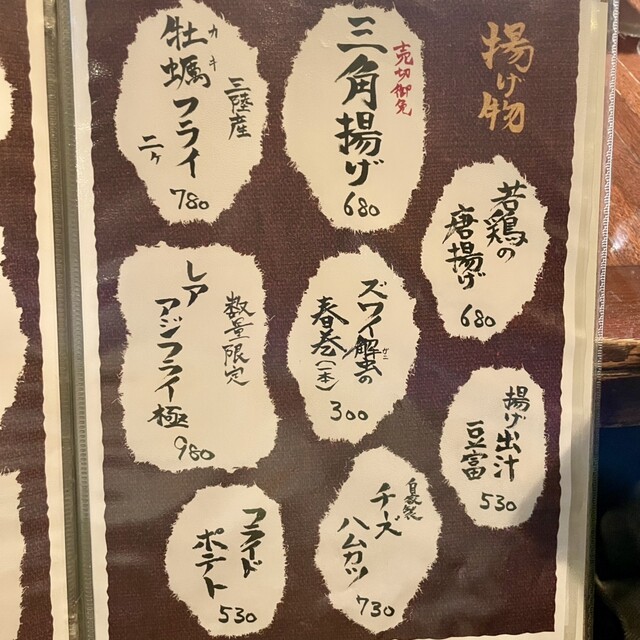 揚げ物
若鶏の
唐揚げ
680
揚げ出汁
豆富
530
売切御免
三角揚げ
680
ズワイ蟹の
ガニ
春巻(一本)
300
自家製
チーズ
ハムカツ
730
三陸産
牡蠣フライ
カキ
二ヶ
780
数量限定
レア
アジフライ極
980
フライド
ポテト
530